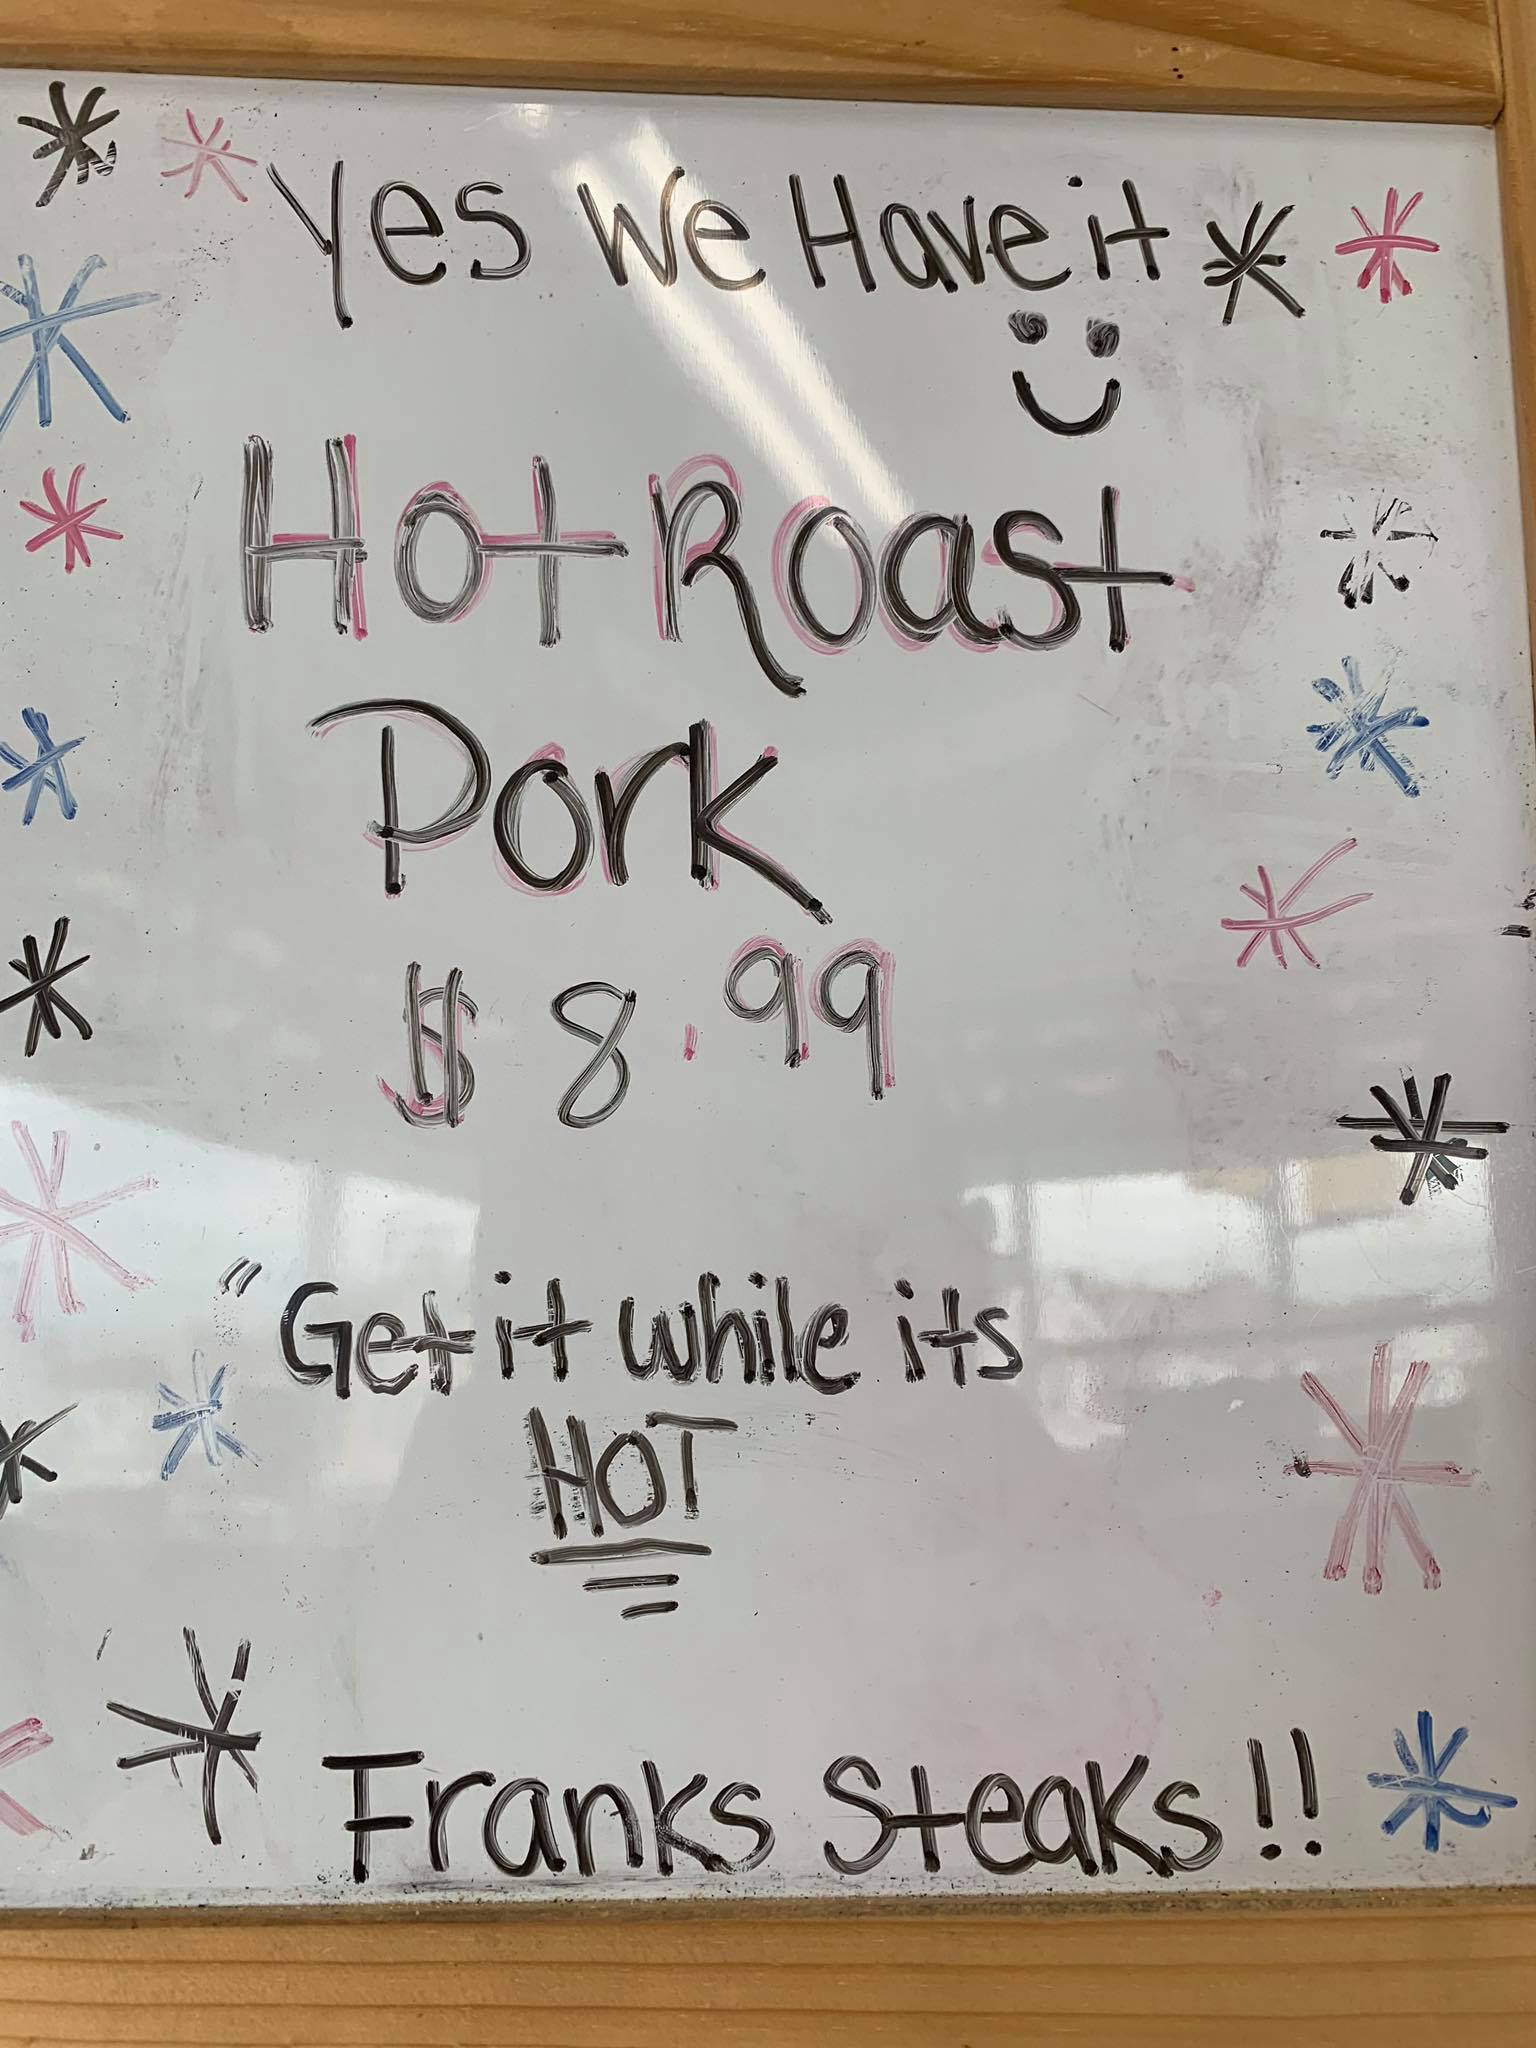 Yes We Have it
Hot Roast
Pork
$8.99
"Get it while its
HOT
Franks Steaks!!